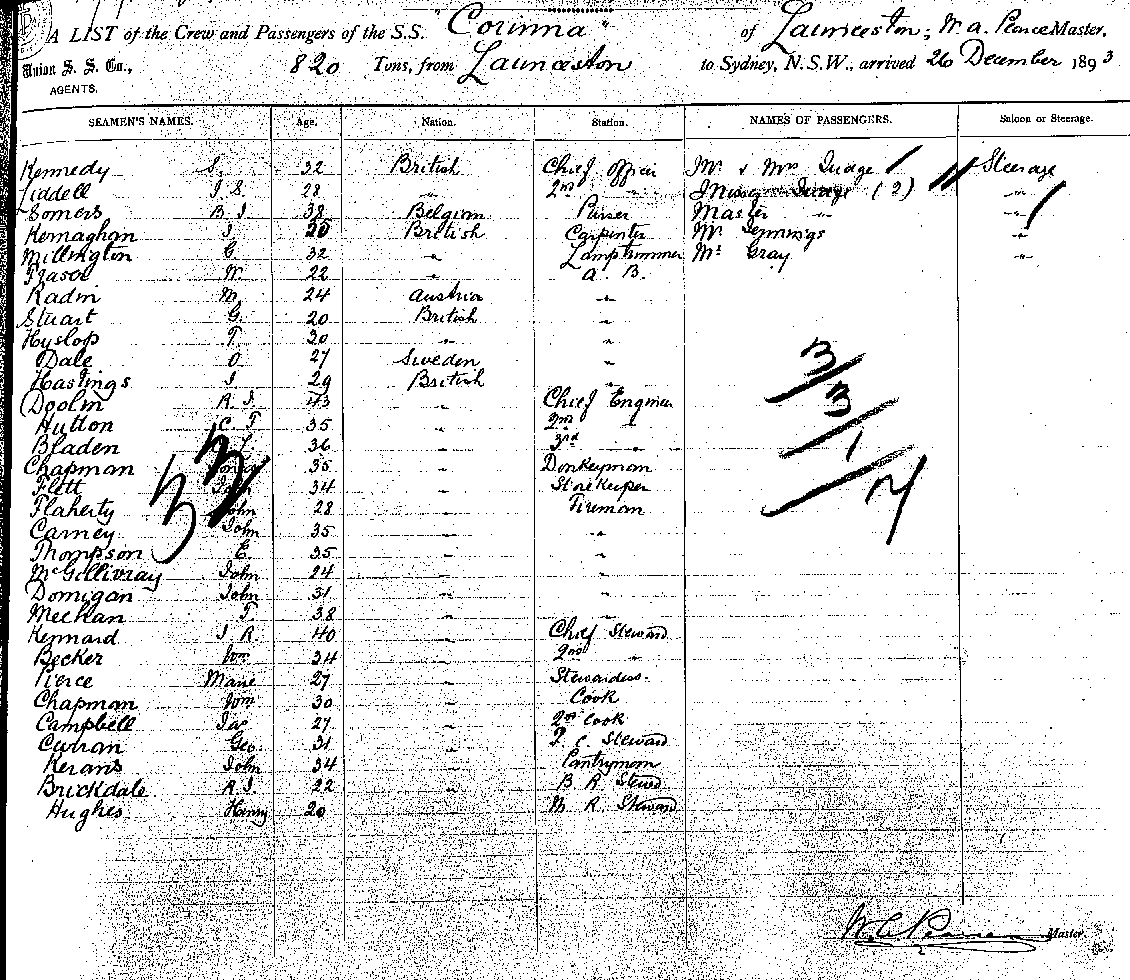 A LIST of the Crew and Passengers of the S.S. "Corinna" of Launceston, W. A. Pearce Master,
Union S. S. Co., AGENTS. 820 Tons, from Launceston to Sydney, N.S.W., arrived 26 December 1893
SEAMEN'S NAMES. Age. Nation. Station. NAMES OF PASSENGERS. Saloon or Steerage.
Kennedy S. 32 British Chief Officer Mr & Mrs Judge Steerage
Liddell J. S. 28 " 2nd " Misses Judge (2) "
Somers B J 38 Belgium Purser Master " "
Kernaghan J 25 British Carpenter Mr Jennings "
Millington C. 32 " Lamptrimmer Mr Gray "
Fraser W. 22 " A. B.
Radin M. 24 Austria "
Stuart G. 20 British "
Hyslop T. 30 " "
Dale O 27 Sweden "
Hastings J 29 British "
Doolin R. J. 43 " Chief Engineer
Hutton C. T 35 " 2nd "
Bladen 36 " 3rd "
Chapman 35 " Donkeyman
Flett 34 " Storekeeper
Flaherty John 28 " Fireman
Carney John 35 " "
Thompson E. 35 " "
McGillivray John 24 " "
Domigan John 31 " "
Meehan T. 38 " "
Kennard J R. 40 " Chief Steward
Becker Wm 34 " 2nd "
Pierce Marie 27 " Stewardess
Chapman Wm 30 " Cook
Campbell Jas 27 " 2nd Cook
Curran Geo. 31 " F. C Steward
Kerans John 34 " Pantryman
Brickdale R J. 22 " B R Stewd
Hughes Henry 20 " M. R. Steward
33
3/3/1/7
Master.